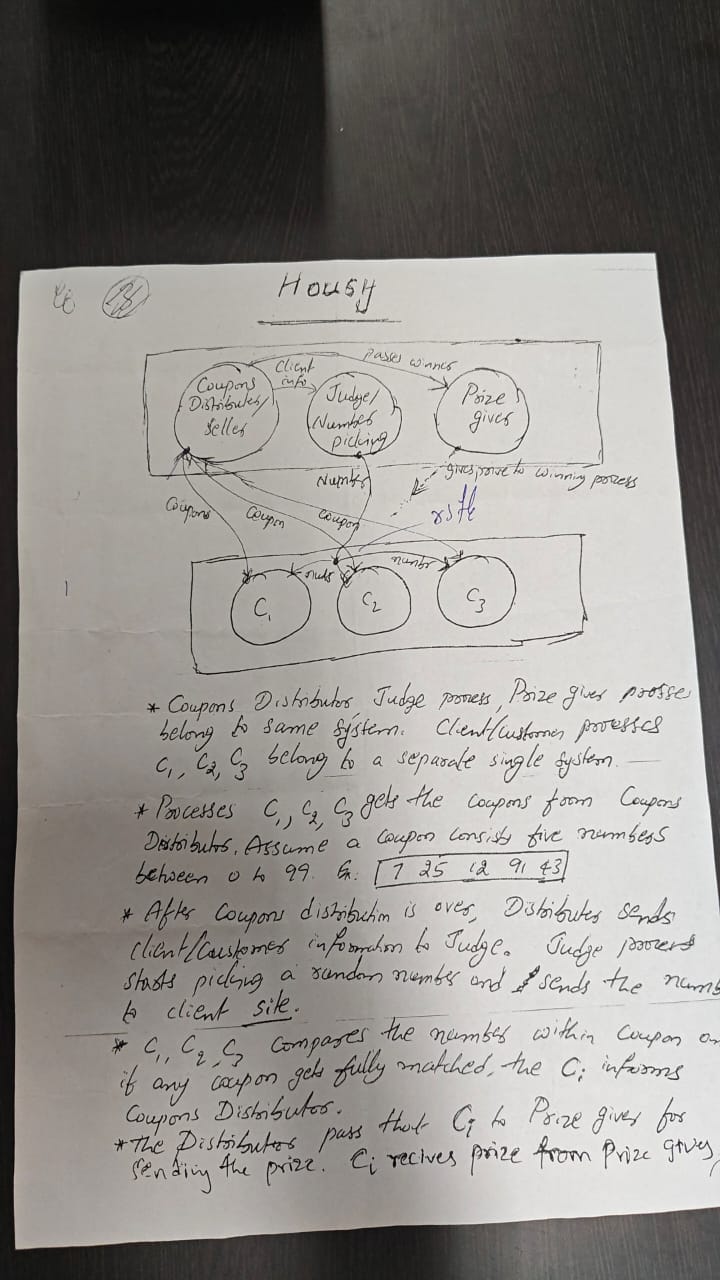 Housy
Passes winner
Client
info
Coupons
Distributer/
Seller
Judge/
Number
picking
Prize
giver
Number
gives prize to winning process
Coupons
Coupon
Coupon
number
C1
C2
C3
* Coupons Distributor, Judge process, Prize giver
belong to same system. Client/customer processes
C1, C2, C3 belong to a separate single system.
* Processes C1, C2, C3 gets the coupons from Coupons
Distributor. Assume a coupon consists five numbers
between 0 to 99. Ex: 7 25 12 91 43
* After Coupons distribution is over, Distributer sends
client/Customer information to Judge. Judge process
starts picking a random number and sends the numb
to client site.
* C1, C2, C3 compares the number within coupon an
if any coupon gets fully matched, the Ci informs
Coupons Distributor.
* The Distributer pass that Ci to Prize giver for
sending the prize. Ci recives prize from Prize giver